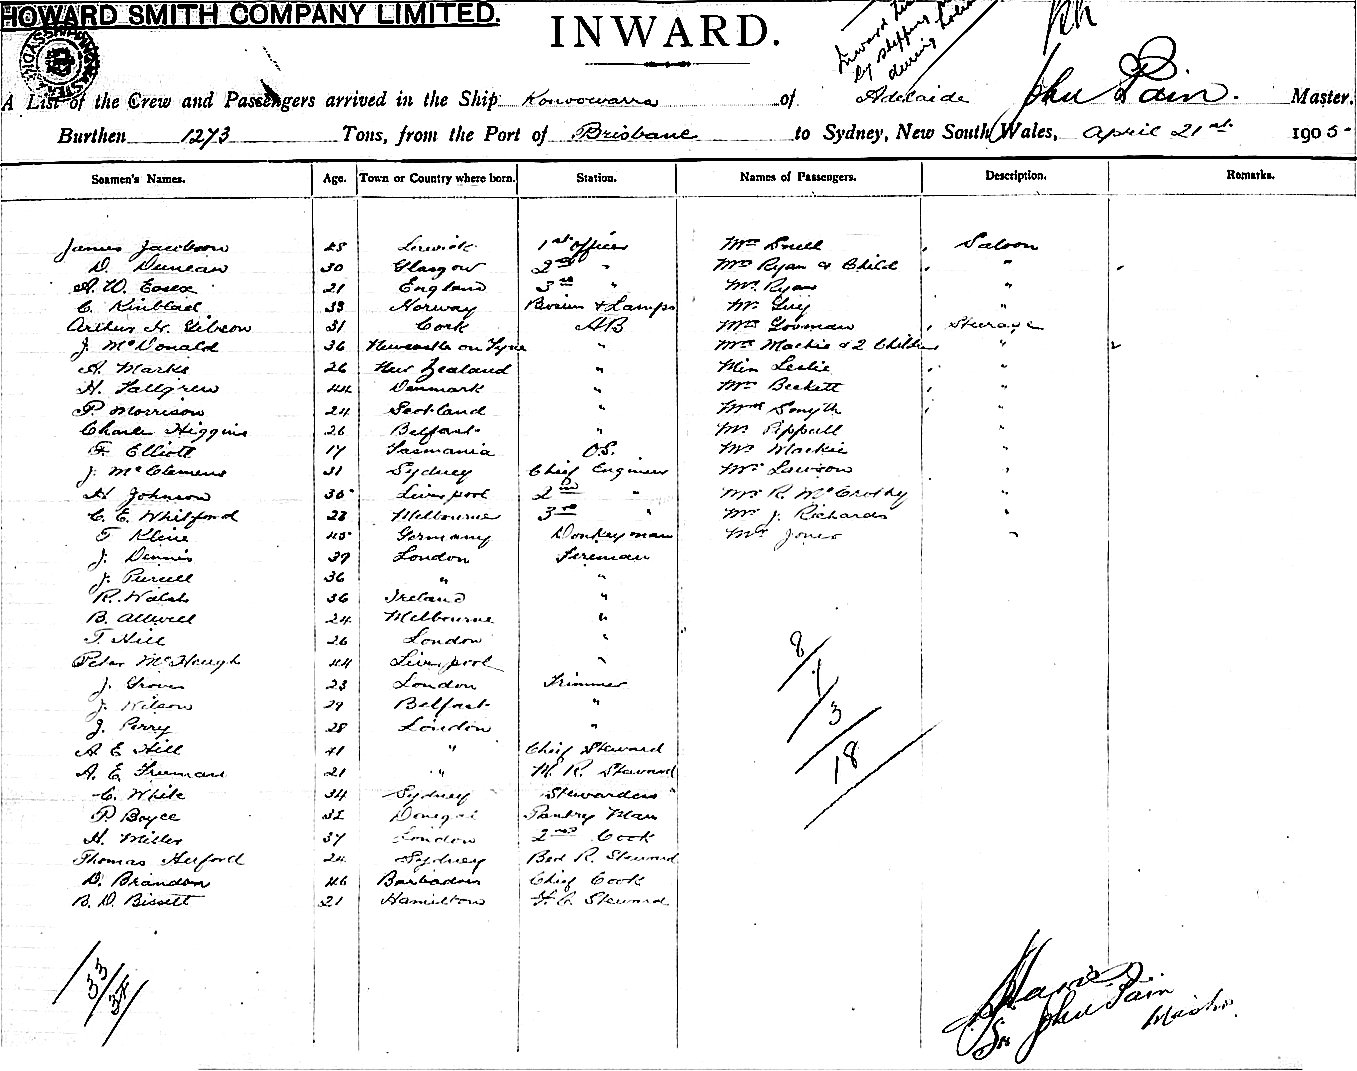 HOWARD SMITH COMPANY LIMITED.
INWARD.
Inward
by shipping
during
John Pain.
A List of the Crew and Passengers arrived in the Ship Konoowarra of Adelaide Master.
Burthen 1273 Tons, from the Port of Brisbane to Sydney, New South Wales, April 21st 1905
Seamen's Names. Age. Town or Country where born. Station. Names of Passengers. Description. Remarks.
James Jacobson 48 Lerwick 1st Officer Mrs Snell Saloon
D. Duncan 30 Glasgow 2nd " Mrs Ryan & Child "
A. W. Essex 21 England 3rd " Mr Ryan "
C. Kinblad 33 Norway Bosun & Lamps Mr Guy "
Arthur H. Gibson 31 Cork AB Mrs Steerage
J. McDonald 36 Newcastle on Tyne " Mrs Mackie & 2 Children "
A. Marks 26 New Zealand " Miss Leslie "
H. Fallgren 44 Denmark " Mrs Beckett "
P. Morrison 24 Scotland " Smyth "
Charles Higgins 26 Belfast " Mr Pippall "
F. Elliott 17 Tasmania O.S. Mr Mackie "
J. McClemens 31 Sydney Chief Engineer Mr Lawson "
H. Johnson 30 Liverpool 2nd " Mr R. McCrothy "
C. E. Whitford 23 Melbourne 3rd " Mr J. Richards "
F. Kline 45 Germany Donkeyman Mr Jones "
J. Dennis 39 London Fireman
J. Purcell 36 " "
R. Walsh 36 Ireland "
B. Allwell 24 Melbourne "
T. Hill 26 London "
Peter McHough 44 Liverpool "
J. Groves 23 London Trimmer
J. Wilson 29 Belfast "
J. Perry 28 London "
A E Hill 41 " Chief Steward
A. E. Freeman 21 " M. R. Steward
C. White 34 Sydney Stewardess
P. Boyce 32 Donegal Pantry Man
H. Miller 37 London 2nd Cook
Thomas Hurford 24 Sydney Bed R. Steward
D. Brandon 46 Barbadoes Chief Cook
B. D. Bissett 21 Hamilton F. C. Steward
8/
1/
3/
18/
33/
34/
John Pain
Master.